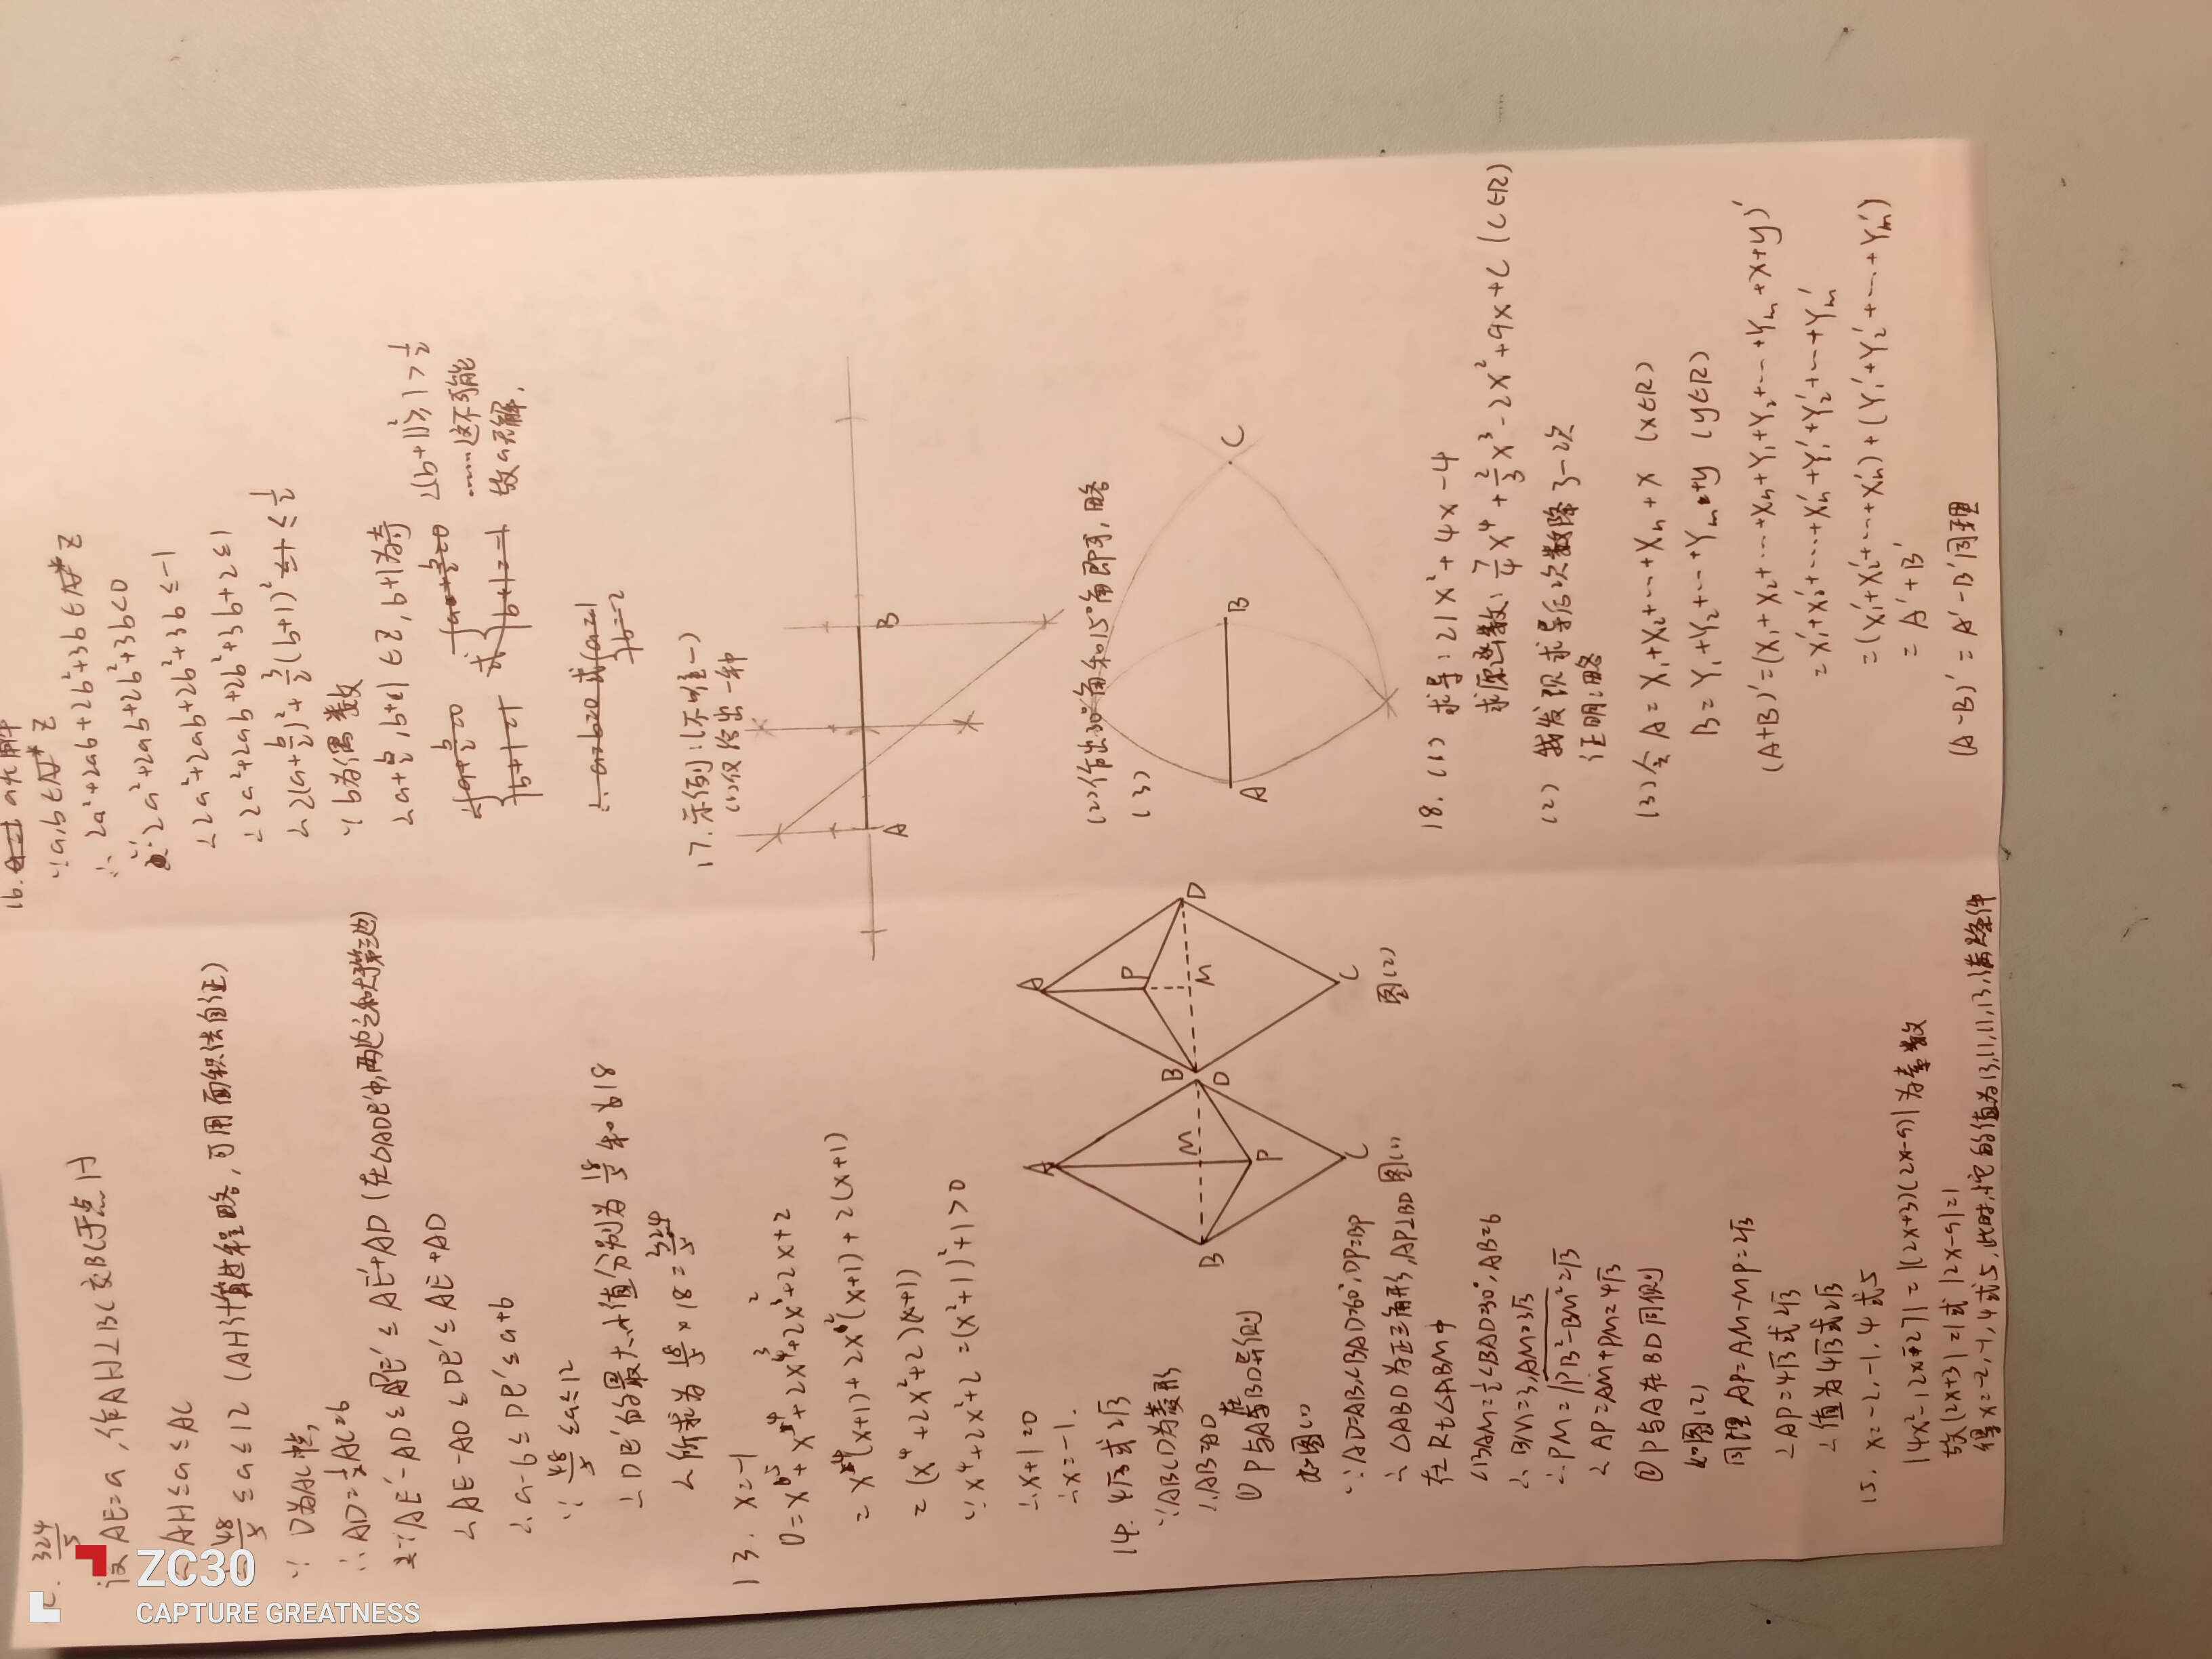 324/5
设AE=a,作AH⊥BC交BC于点H
∴AH≤a≤AC
∴48/5≤a≤12(AH计算过程略,可用面积法自证)
∵D为AC中点,
∴AD=1/2AC=6
又∵AE'-AD≤DE'≤AE'+AD(在△ADE'中,两边之和大于第三边)
∴AE-AD≤DE'≤AE+AD
∴a-6≤DE'≤a+6
∵48/5≤a≤12
∴DE'的最大、小值分别为18/5和18
∴所求为18/5×18=324/5
13. x=-1
0=x⁵+x⁴+2x³+2x²+2x+2
=x⁴(x+1)+2x²(x+1)+2(x+1)
=(x⁴+2x²+2)(x+1)
∵x⁴+2x²+2=(x²+1)²+1>0
∴x+1=0
∴x=-1.
14. 4√3或2√3
∵ABCD为菱形
∴AB=AD
①P与A在BD异侧
如图(1)
∵AD=AB,∠BAD=60°,DP=BP
∴△ABD为正三角形,AP⊥BD
在Rt△ABM中
∠BAM=1/2∠BAD=30°,AB=6
∴BM=3,AM=3√3
∴PM=√PB²-BM²=√3
∴AP=AM+PM=4√3
②P与A在BD同侧
如图(2)
同理AP=AM-MP=2√3
∴AP=4√3或2√3
∴值为4√3或2√3
A
B
D
M
P
C
图(1)
A
B
D
P
M
C
图(2)
15. x=-2,-1,4或5
|4x²-12x-27|=|(2x+3)(2x-9)|为素数
故|2x+3|=1或|2x-9|=1
得x=-2,-1,4或5,此时,它的值为13,11,11,13,满足条件
16. a无解
∵a,b∈Z
∴2a²+2ab+2b²+3b∈Z
∵2a²+2ab+2b²+3b<0
∴2a²+2ab+2b²+3b≤-1
∴2a²+2ab+2b²+3b+2≤1
∴2(a+b/2)²+3/2(b+1)²≤1/2
∵b为偶数
∴a+b/2,b+1∈Z,b+1为奇
∴(b+1)²≥1>1/2
……这不可能
故a无解.
17. 示例:(不唯一)
(1)仅给出一种
A
B
(2)作出30°角和15°角即可,略
(3)
A
B
C
18. (1) 求导:21x²+4x-4
求原函数:7/4x⁴+2/3x³-2x²+9x+C(C∈R)
(2) 我发现求导后次数降了一次
证明:略
(3)令A=X₁+X₂+…+Xₙ+x (x∈R)
B=Y₁+Y₂+…+Yₘ+y (y∈R)
(A+B)'=(X₁+X₂+…+Xₙ+Y₁+Y₂+…+Yₘ+x+y)'
=X₁'+X₂'+…+Xₙ'+Y₁'+Y₂'+…+Yₘ'
=(X₁'+X₂'+…+Xₙ')+(Y₁'+Y₂'+…+Yₘ')
=A'+B'
(A-B)'=A'-B'同理
ZC30
CAPTURE GREATNESS